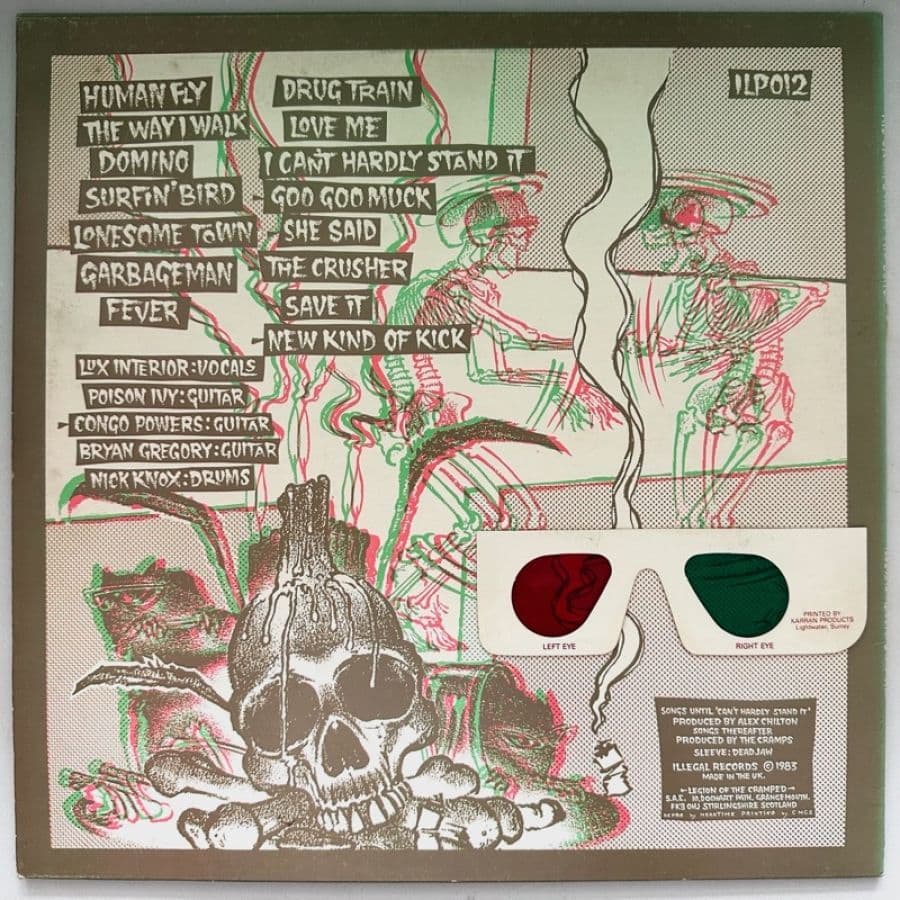 HUMAN FLY
THE WAY I WALK
DOMINO
SURFIN' BIRD
LONESOME TOWN
GARBAGEMAN
FEVER
DRUG TRAIN
LOVE ME
I CAN'T HARDLY STAND IT
GOO GOO MUCK
SHE SAID
THE CRUSHER
SAVE IT
NEW KIND OF KICK
ILP012
LUX INTERIOR:VOCALS
POISON IVY:GUITAR
CONGO POWERS:GUITAR
BRYAN GREGORY:GUITAR
NICK KNOX:DRUMS
LEFT EYE
RIGHT EYE
PRINTED BY
KARRAN PRODUCTS
Lightwater, Surrey
SONGS UNTIL 'CAN'T HARDLY STAND IT'
PRODUCED BY ALEX CHILTON
SONGS THEREAFTER
PRODUCED BY THE CRAMPS
SLEEVE: DEAD JAW
ILLEGAL RECORDS © 1983
MADE IN THE UK.
LEGION OF THE CRAMPED
S.A.E. 10, DOCHART PATH, GRANGEMOUTH.
FK3 0HJ STIRLINGSHIRE SCOTLAND
PRINTED by